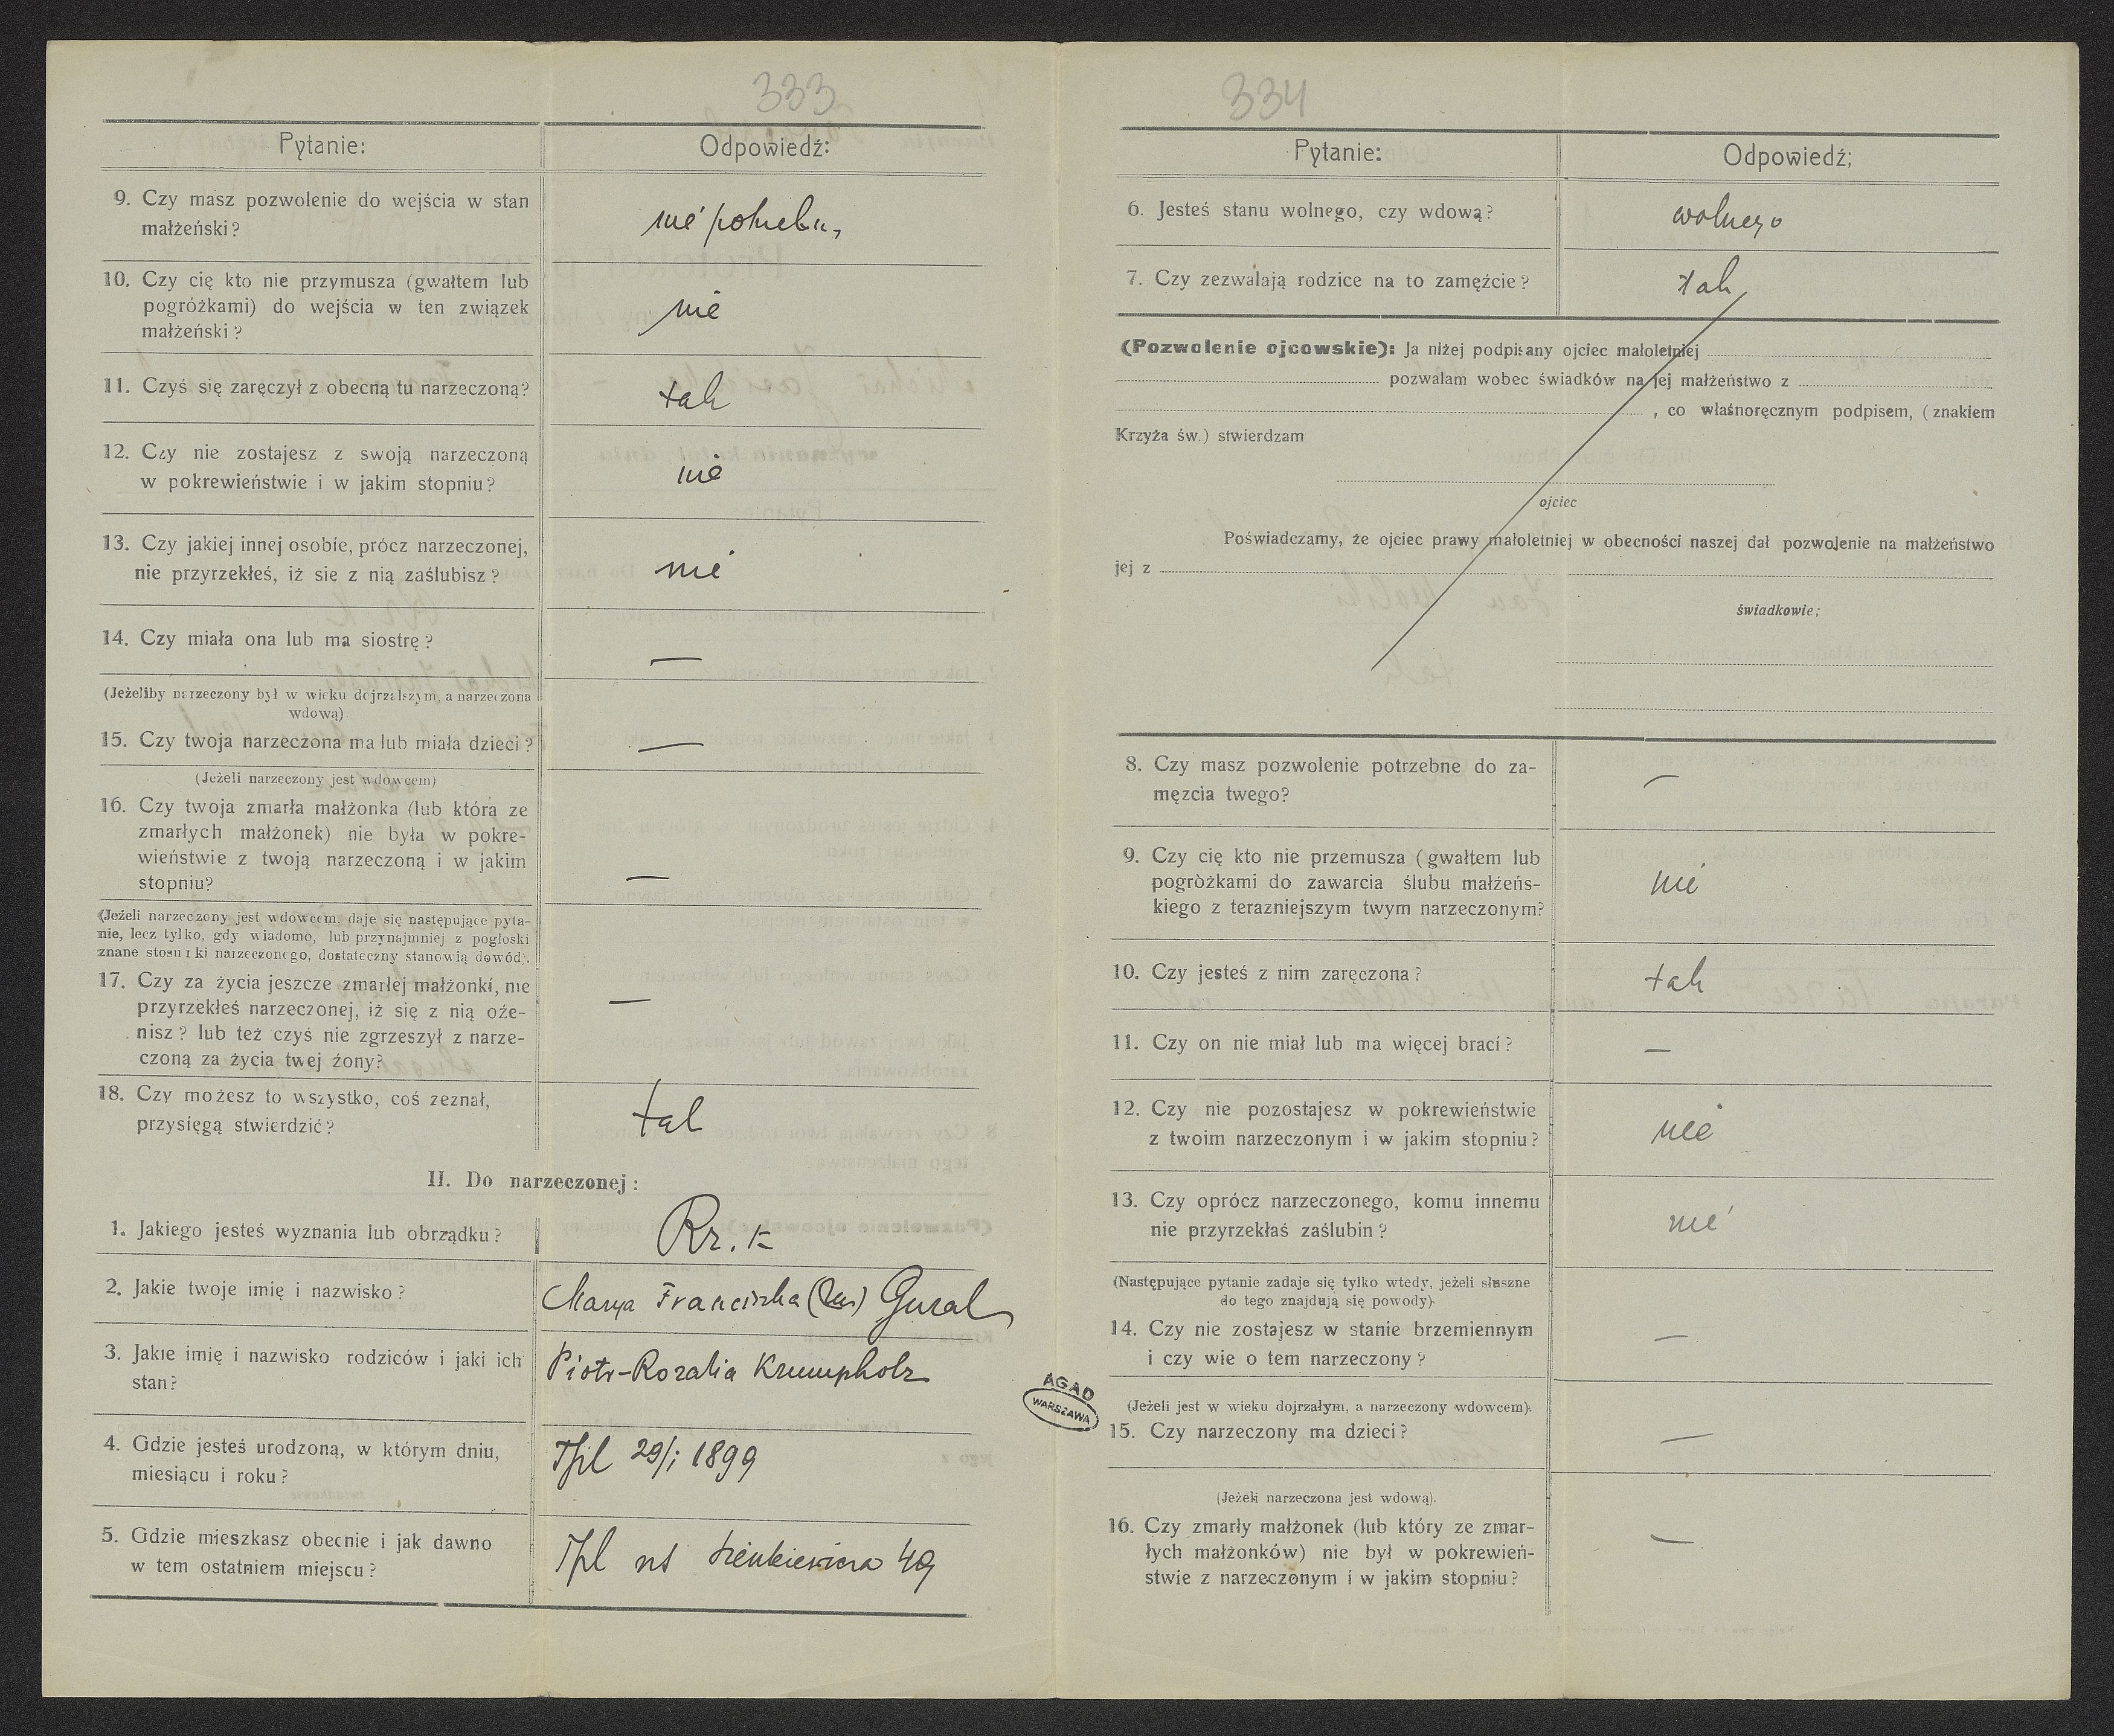 333
Pytanie:
Odpowiedź:
9. Czy masz pozwolenie do wejścia w stan
małżeński?
nie potrzeba
10. Czy cię kto nie przymusza (gwałtem lub
pogróżkami) do wejścia w ten związek
małżeński?
nie
11. Czyś się zaręczył z obecną tu narzeczoną?
tak
12. Czy nie zostajesz z swoją narzeczoną
w pokrewieństwie i w jakim stopniu?
nie
13. Czy jakiej innej osobie, prócz narzeczonej,
nie przyrzekłeś, iż się z nią zaślubisz?
nie
14. Czy miała ona lub ma siostrę?
—
(Jeżeliby narzeczony był w wieku dojrzalszym, a narzeczona
wdową)
15. Czy twoja narzeczona ma lub miała dzieci?
—
(Jeżeli narzeczony jest wdowcem)
16. Czy twoja zmarła małżonka (lub która ze
zmarłych małżonek) nie była w pokre-
wieństwie z twoją narzeczoną i w jakim
stopniu?
—
(Jeżeli narzeczony jest wdowcem, daje się następujące pyta-
nie, lecz tylko, gdy wiadomo, lub przynajmniej z pogłoski
znane stosunki narzeczonego, dostateczny stanowią dowód).
17. Czy za życia jeszcze zmarłej małżonki, nie
przyrzekłeś narzeczonej, iż się z nią oże-
nisz? lub też czyś nie zgrzeszył z narze-
czoną za życia twej żony?
—
18. Czy możesz to wszystko, coś zeznał,
przysięgą stwierdzić?
tak
II. Do narzeczonej:
1. Jakiego jesteś wyznania lub obrządku?
Rz. k
2. Jakie twoje imię i nazwisko?
Marya Franciszka Gural
3. Jakie imię i nazwisko rodziców i jaki ich
stan?
Piotr-Rozalia Krumpholz
4. Gdzie jesteś urodzoną, w którym dniu,
miesiącu i roku?
Tpl 29/i 1899
5. Gdzie mieszkasz obecnie i jak dawno
w tem ostatniem miejscu?
Tpl Sienkiewicza 49
AGAD
WARSZAWA
334
Pytanie:
Odpowiedź;
6. Jesteś stanu wolnego, czy wdową?
wolnego
7. Czy zezwalają rodzice na to zamęźcie?
tak
(Pozwolenie ojcowskie): Ja niżej podpisany ojciec małoletniej
pozwalam wobec świadków na jej małżeństwo z
, co właśnoręcznym podpisem, (znakiem
Krzyża św.) stwierdzam
ojciec
Poświadczamy, że ojciec prawy małoletniej w obecności naszej dał pozwolenie na małżeństwo
jej z
świadkowie;
8. Czy masz pozwolenie potrzebne do za-
męzcia twego?
—
9. Czy cię kto nie przemusza (gwałtem lub
pogròżkami do zawarcia ślubu małżeńs-
kiego z terazniejszym twym narzeczonym?
nie
10. Czy jesteś z nim zaręczona?
tak
11. Czy on nie miał lub ma więcej braci?
—
12. Czy nie pozostajesz w pokrewieństwie
z twoim narzeczonym i w jakim stopniu?
nie
13. Czy oprócz narzeczonego, komu innemu
nie przyrzekłaś zaślubin?
nie
(Następujące pytanie zadaje się tylko wtedy, jeżeli słuszne
do tego znajdują się powody).
14. Czy nie zostajesz w stanie brzemiennym
i czy wie o tem narzeczony?
—
(Jeżeli jest w wieku dojrzałym, a narzeczony wdowcem).
15. Czy narzeczony ma dzieci?
—
(Jeżeli narzeczona jest wdową).
16. Czy zmarły małżonek (lub który ze zmar-
łych małżonków) nie był w pokrewień-
stwie z narzeczonym i w jakim stopniu?
—